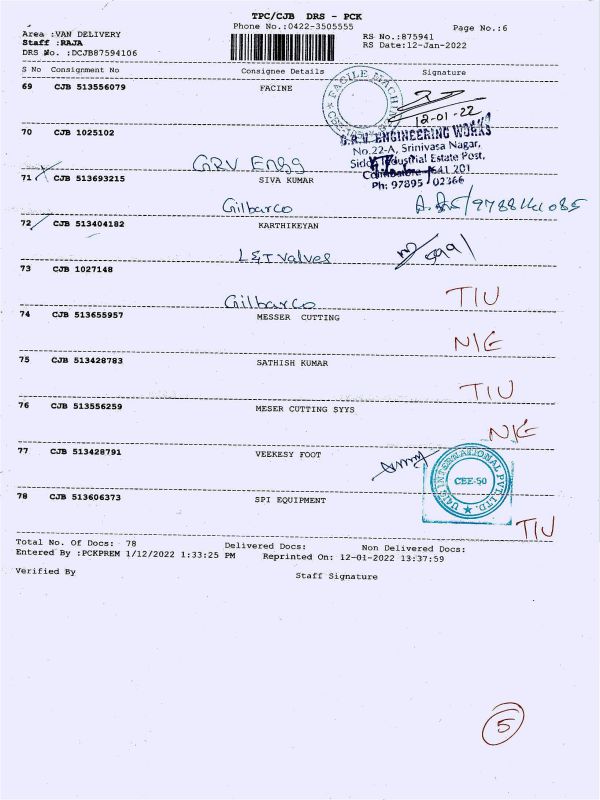 TPC/CJB DRS - PCK
Phone No.:0422-3505555
Page No.:6
Area :VAN DELIVERY
Staff :RAJA
DRS No. :DCJB87594106
RS No.:875941
RS Date:12-Jan-2022
S No Consignment No Consignee Details Signature
69 CJB 513556079 FACINE
FACILE MACHIN
12-01-22
70 CJB 1025102
GRV Engg
G.R.V. ENGINEERING WORKS
No.22-A, Srinivasa Nagar,
Industrial Estate Post,
641 201
Ph: 97895 02366
71 CJB 513693215 SIVA KUMAR
Gilbarco
72 CJB 513404182 KARTHIKEYAN
L&T Valves
73 CJB 1027148
Gilbarco
TIU
74 CJB 513655957 MESSER CUTTING
N/E
75 CJB 513428783 SATHISH KUMAR
TIU
76 CJB 513556259 MESER CUTTING SYYS
N/E
77 CJB 513428791 VEEKESY FOOT
INTERNATIONAL PVT. LTD.
CBE-50
78 CJB 513606373 SPI EQUIPMENT
TIU
Total No. Of Docs: 78 Delivered Docs: Non Delivered Docs:
Entered By :PCKPREM 1/12/2022 1:33:25 PM Reprinted On: 12-01-2022 13:37:59
Verified By Staff Signature
5